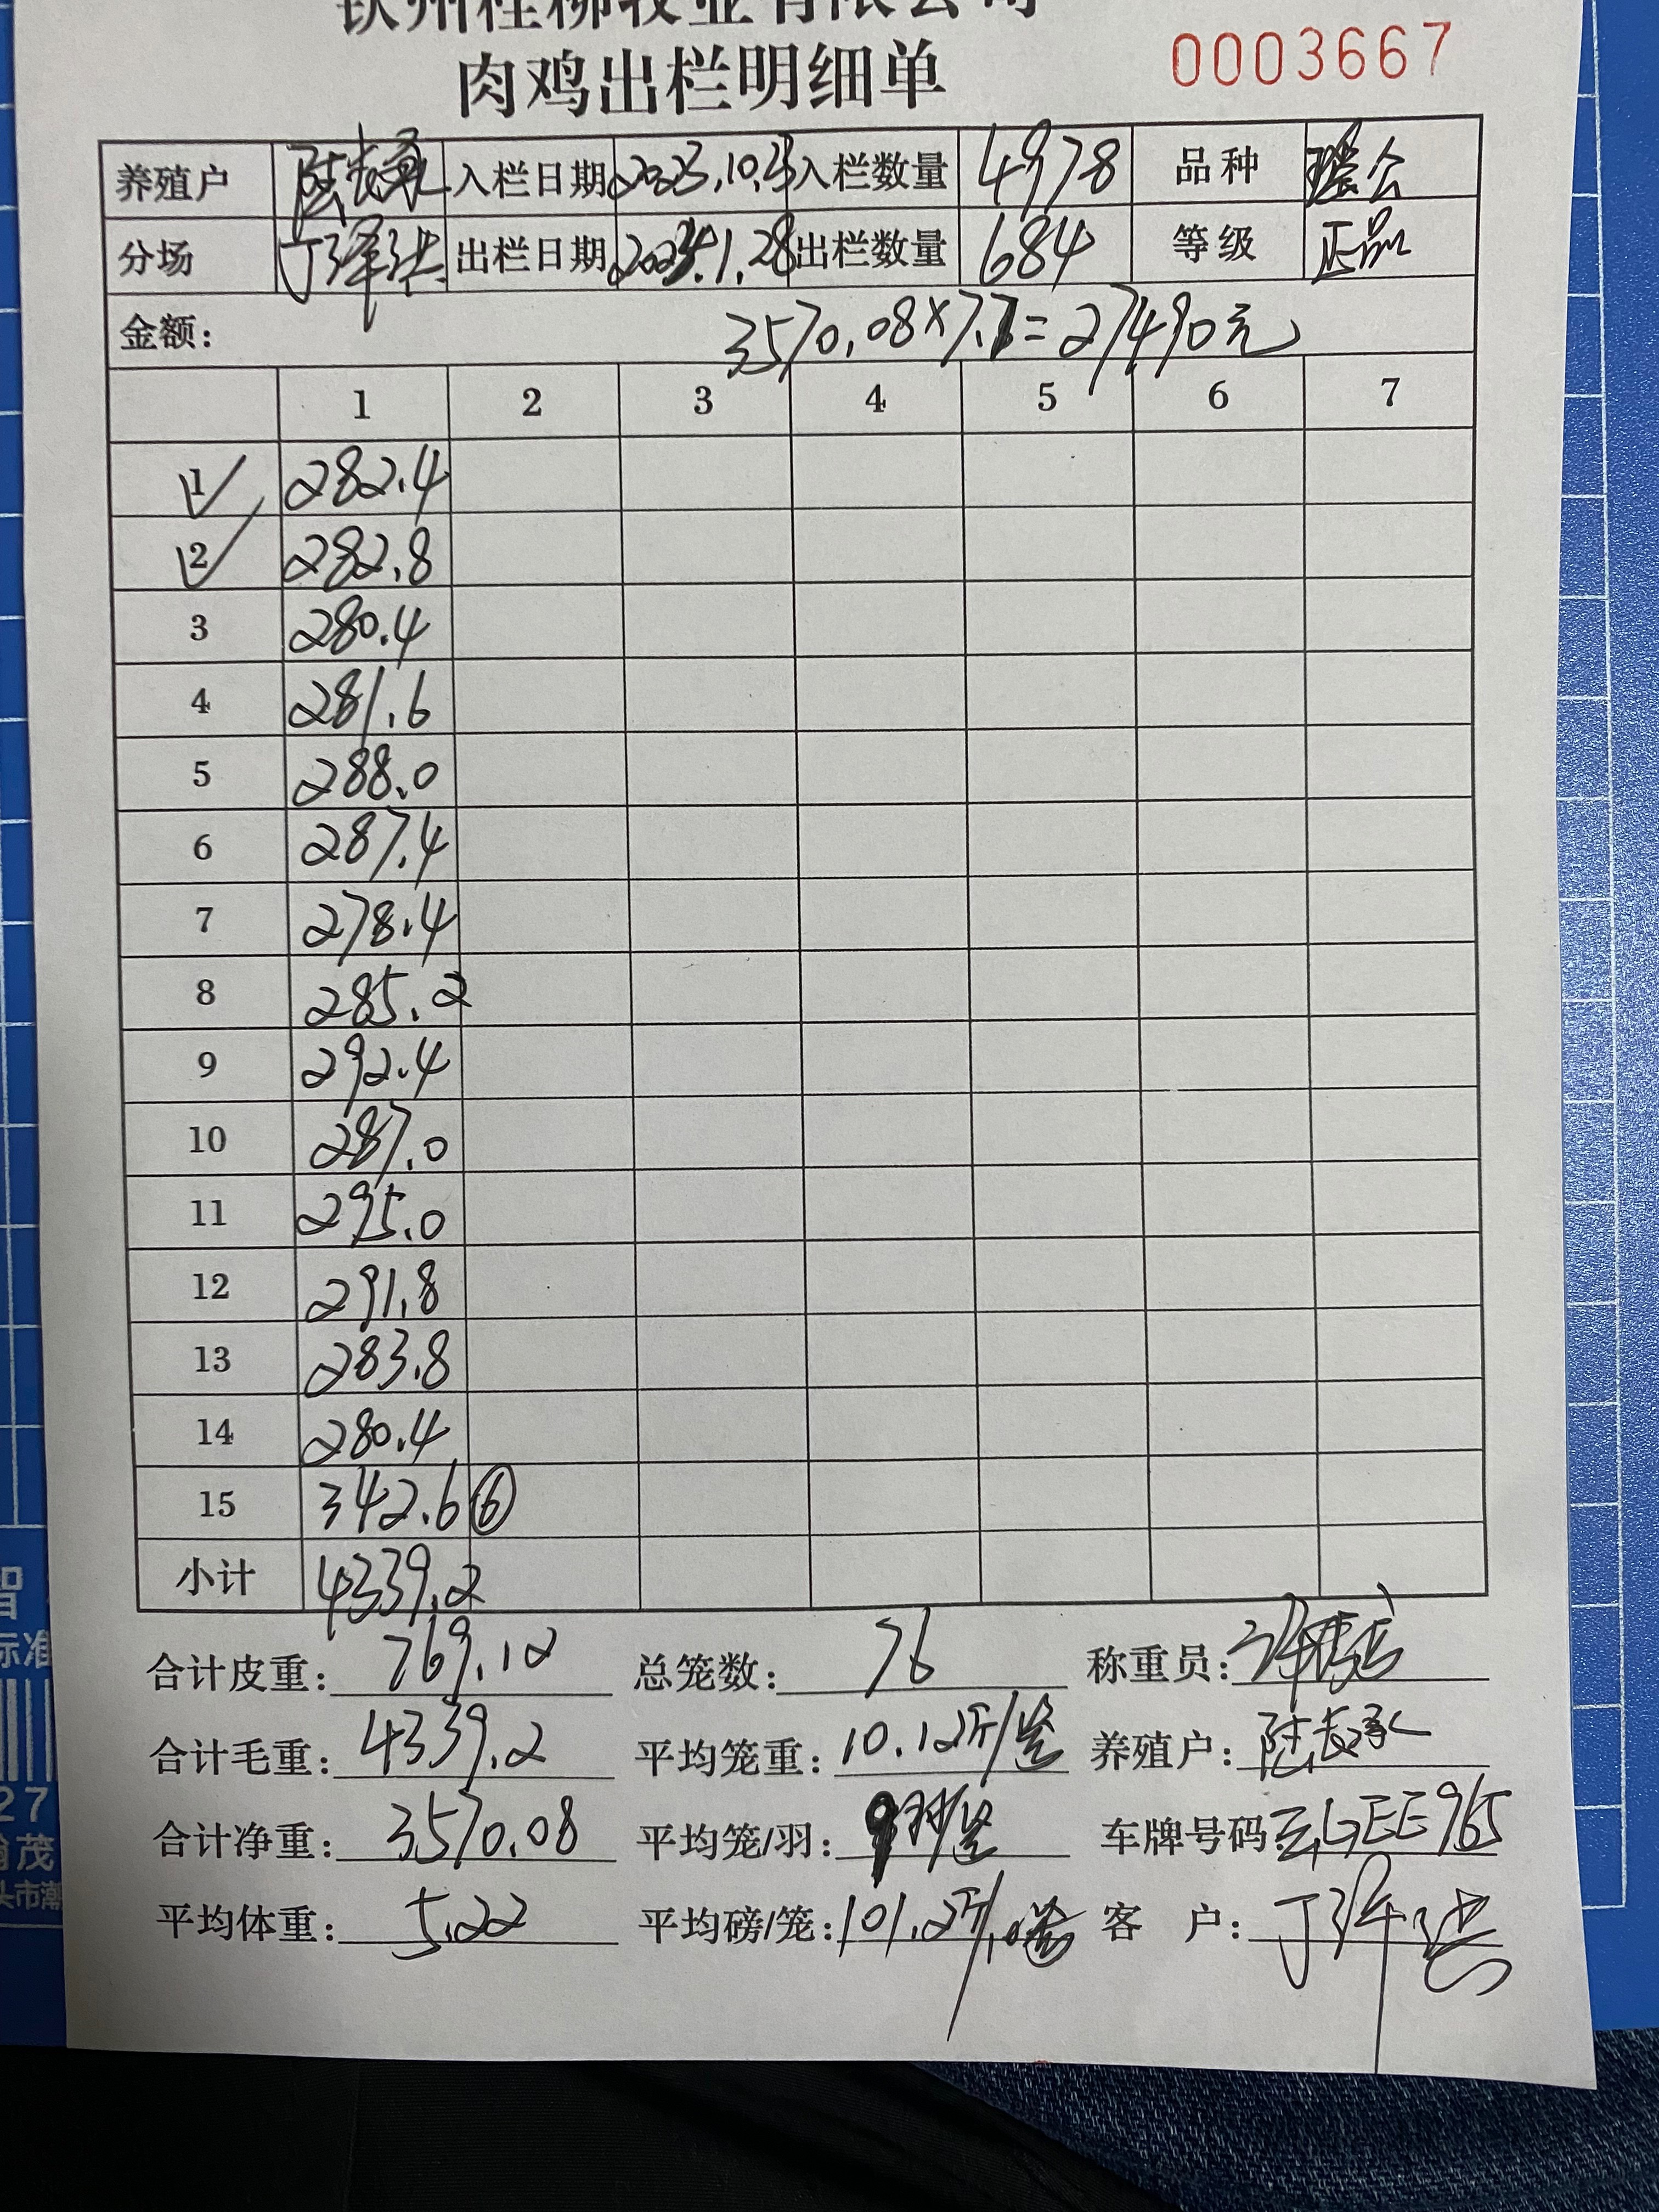 钦州桂柳牧业有限公司
肉鸡出栏明细单 0003667
养殖户 入栏日期 2023.10. 入栏数量 4978 品种 瑶公
分场 丁泽洪 出栏日期 2024.1.28 出栏数量 684 等级 正品
金额： 3570.08×7.7=27490元
1 2 3 4 5 6 7
1 282.4
2 282.8
3 280.4
4 281.6
5 288.0
6 287.4
7 278.4
8 285.2
9 292.4
10 287.0
11 295.0
12 291.8
13 283.8
14 280.4
15 342.6 ⑥
小计 4339.2
合计皮重： 769.12 总笼数： 76 称重员：
合计毛重： 4339.2 平均笼重： 10.12斤/笼 养殖户：
合计净重： 3570.08 平均笼/羽： 9羽/笼 车牌号码： GEE965
平均体重： 5.22 平均磅/笼： 101.2斤/ 客 户： 丁泽洪
27
标准